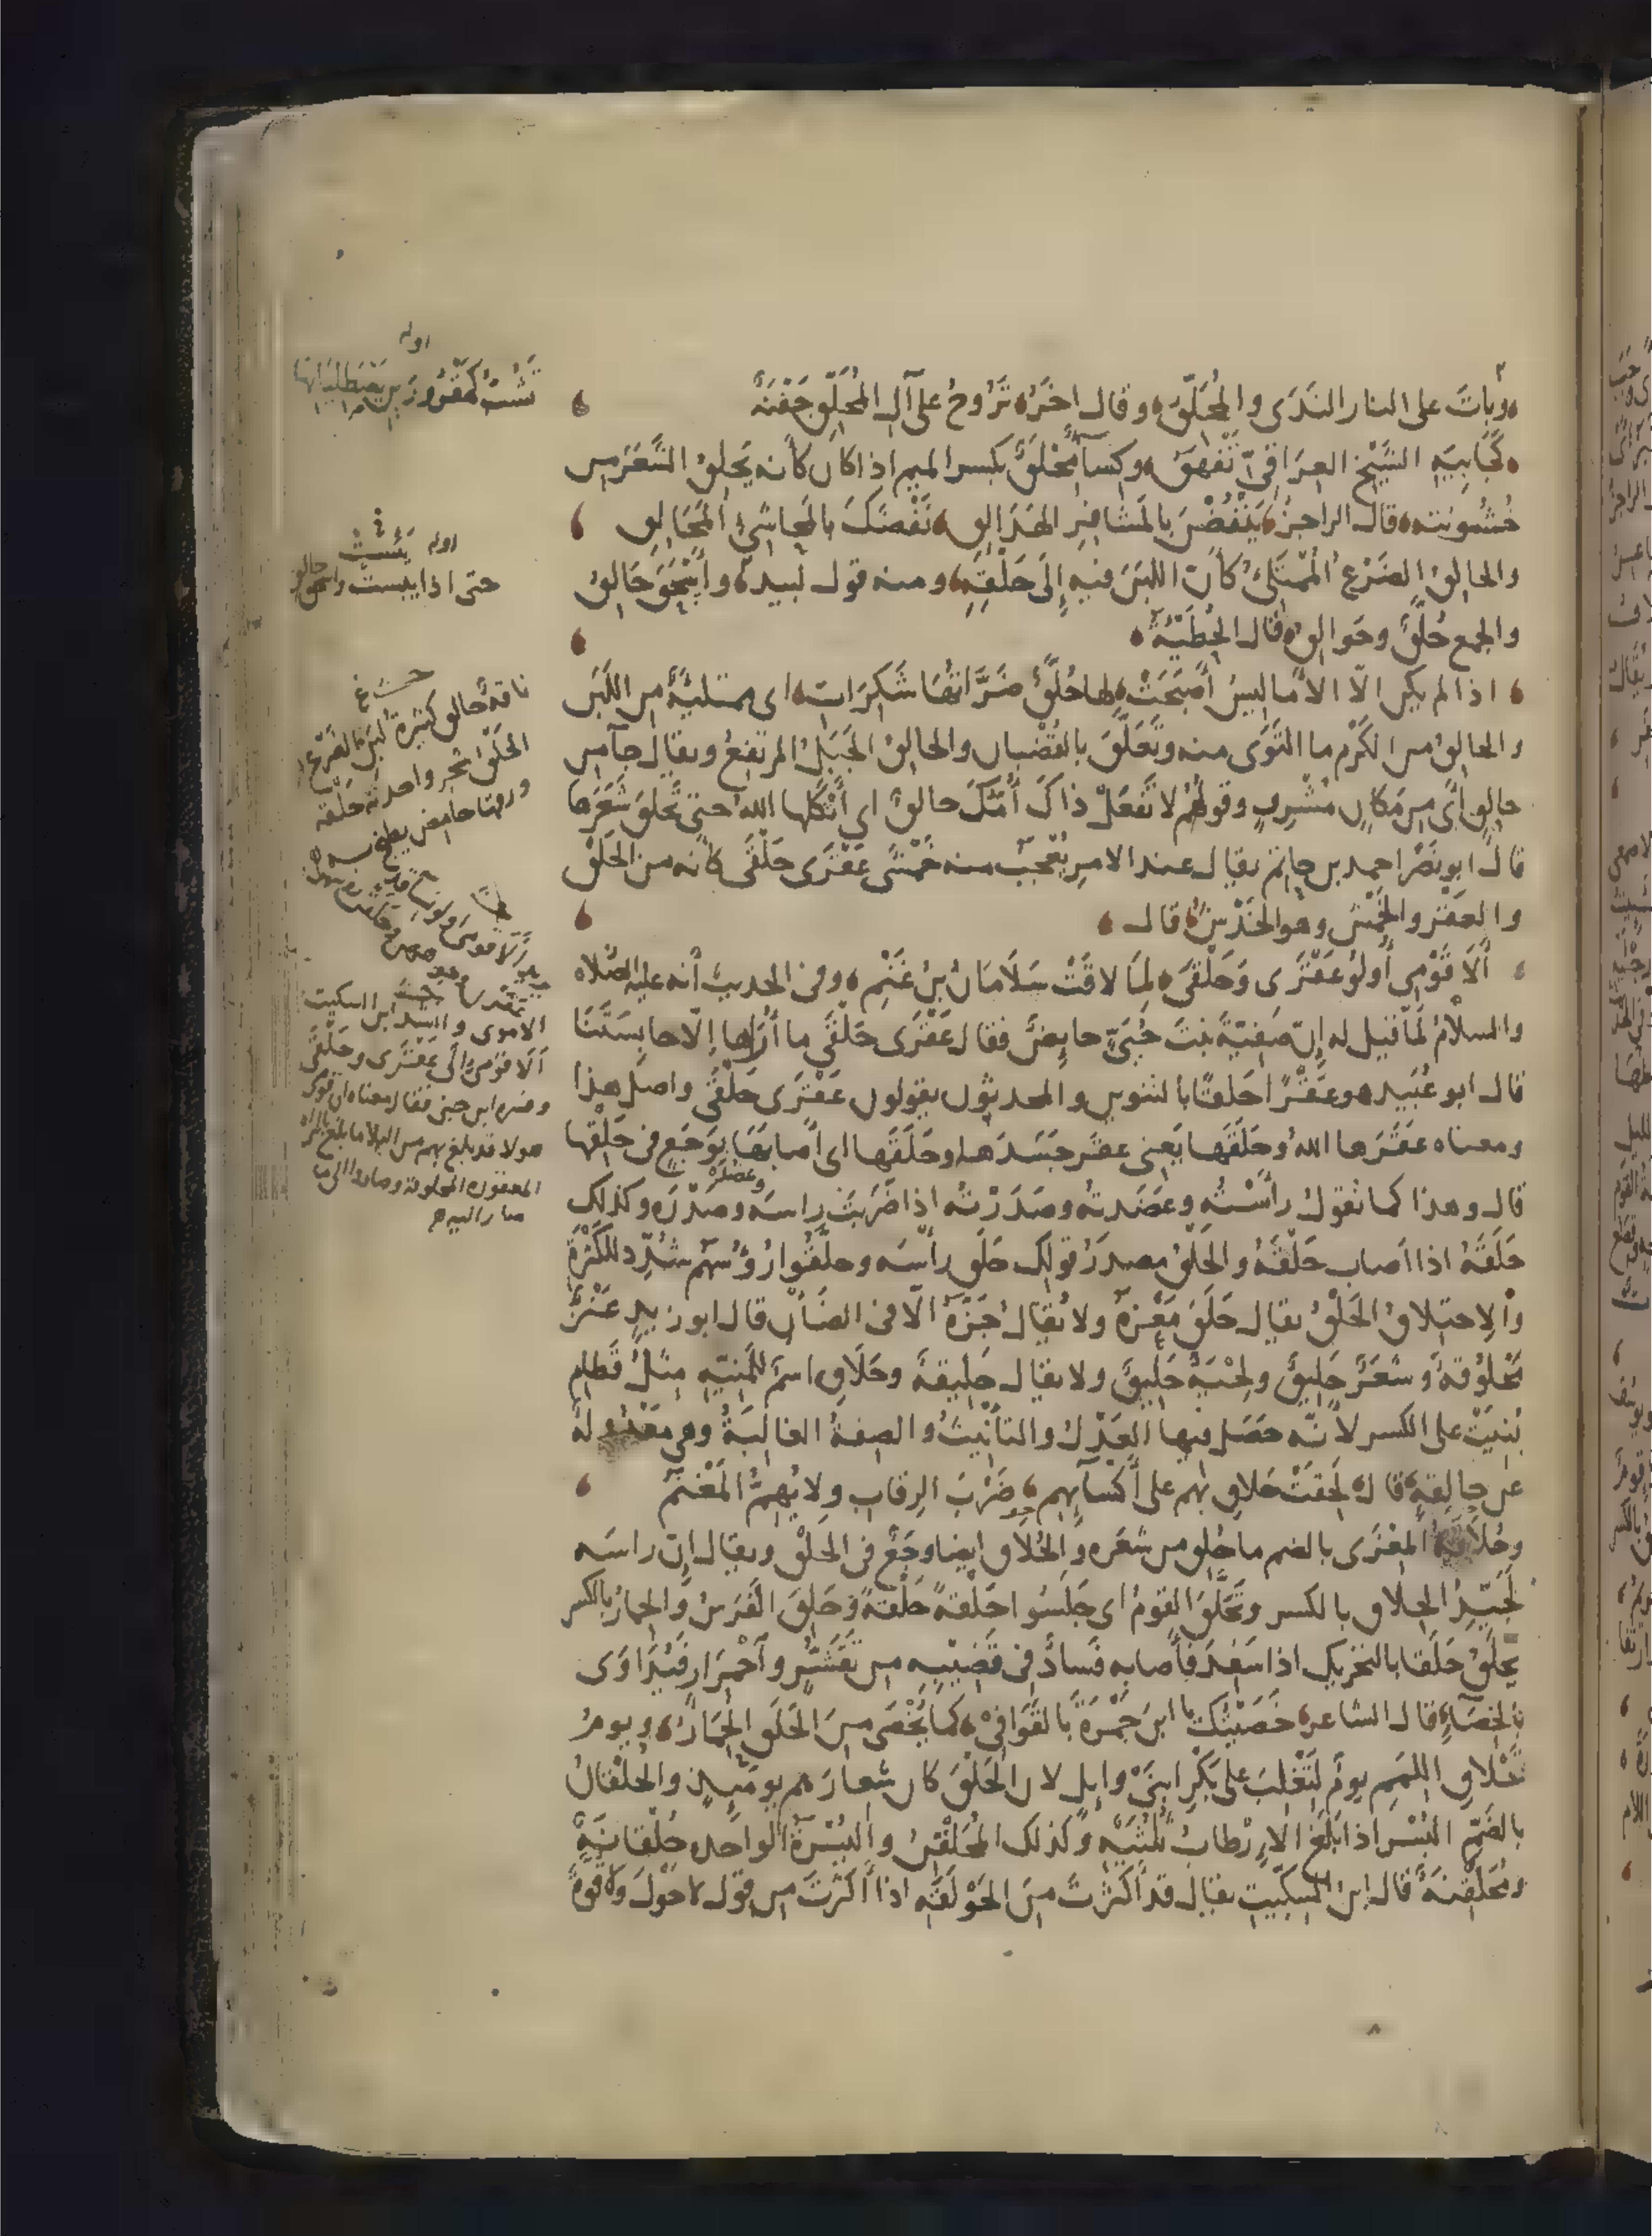 وبَاتَ على النار النَدَى والمُحَلَّقُ وقال اخَرُ تَرُوحُ على آلِ المُحَلَّقِ جَفْنَةٌ
كَجَابِيَةِ الشَيْخِ العِرَاقِيِّ تَفْهَقُ وكِسَآءٌ مِحْلَقٌ بكسر الميم اذا كان كأنه يَحلِقُ الشَعَرَ من
خُشُونته قال الراجزُ يَنْفُضْنَ بالمَشَافِرِ الهَدَالِقِ نَفْضَكَ بالمَحاشِئِ المَحَالِقِ
والحالِقُ الضَرْعُ المُمتَلِئُ كأن اللبَنَ فيه إلى حَلْقِهِ ومنه قول لبيد وأَسْحَقَ حَالِقُ
والجمع حُلَّقٌ وحَوالِقُ قال الحُطَيْئةُ
اذا لم يكن الّا الأَمَاليسُ أَصبَحَتْ لها حُلَّقٌ ضَرَّاتُها شَكِرَاتِ اى ممتلئةٌ من اللَبَن
والحالِقُ من الكَرْم ما التَوَى منه وتَعَلَّقَ بالقُضْبان والحالِقُ الجَبَلُ المرتَفِعُ ويقال جآ من
حالِقٍ أى من مَكانٍ مُشْرِفٍ وقولُهُم لا تَفعَلْ ذاكَ أُمُّكَ حالِقٌ اى أثْكَلَها اللهُ حتى تَحلِقَ شَعَرَها
قال ابو نَصْر احمد بن حاتِم يقال عند الامر يُعْجَبُ منه خَمْشَى عَقْرَى حَلْقَى كأنه من الحَلْق
والعَقْرِ والخَمْشِ وهو الخَدْشُ قال
أَلَا قَوْمِى أُولُو عَقْرَى وَحَلْقَى لِمَا لاقَتْ سَلَامَانُ بنُ غَنْمِ وفى الحديث أنه عليه الصلاه
والسلامُ لَمّا قيل له إنّ صَفِيّةَ بنتَ حُيَىٍّ حايِضٌ فقال عَقْرَى حَلْقَى ما أُرَاها إلّا حابِسَتَنَا
قال ابو عُبَيد هو عَقْرًا حَلْقًا بالتنوين والمحدثون يقولون عَقْرَى حَلْقَى واصل هذا
ومعناه عَقَرَها اللهُ وحَلَقَها يَعنِى عقَر جَسَدَها وحَلَقَها اى أصابَها بِوَجَعٍ فى حَلْقِها
قال وهذا كما تقول رأَسْتُه وعَضَدتُه وصَدَرْتُه اذا ضَرَبْتَ راسَه وصَدْرَه وعَضُدَه وكذلك
حَلَقَهُ اذا اَصاب حَلْقَهُ والحَلْقُ مصدرُ قولك حَلَق رأسَه وحلَّقُوا رُؤُسَهُم شُدِّد للكَثْرة
والاحتِلاقُ الحَلْقُ يقال حَلَقَ مَعْزَهُ ولا يُقالُ جَزَّهُ الّا فى الضَأْن قال ابو زيدٍ عَنْزٌ
مَحْلُوقةٌ وشَعَرٌ حَلِيقٌ ولِحْيَةٌ حَلِيقٌ ولا يقال حَلِيقةٌ وحَلَاقِ اسمٌ للمَنِيّةِ مِثلُ قَطامِ
بُنِيَتْ على الكسر لأنّه حَصَل فيها العَدْلُ والتأنيثُ والصِفةُ الغالِبَةُ وهى مَعْدُولَةٌ
عن حالِقةٍ قال لَحِقَتْ حَلاقِ بهم على أكسآئِهم ضَرْبَ الرِقابِ ولا يُهِمُّ المَغْنَمُ
وحُلَاقَةُ المِعْزَى بالضم ما حُلِق من شعَره والحُلاق ايضا وَجَعٌ فى الحَلْق ويقال إنّ راسَه
لَجَيّدُ الحِلاقِ بالكسر وتَحَلَّقَ القومُ اى جَلَسُوا حَلْقةً حَلْقةً وحَلِقَ الفَرَسُ والحِمارُ بالكسر
يَحلَقُ حَلَقًا بالتحريك اذا سَفِدَ فأصابه فَسادٌ فى قَضِيبِه من تَقَشُّرٍ وآحْمِرَارٍ فَيُدَاوَى
بالخِصَآءِ قال الشاعر خَصَيْتُكَ يا ابنَ حَمْزَةَ بالقَوَافِىْ كما يُخْصَى مِنَ الحَلَقِ الحِمَارُ ويومُ
تَحْلَاقِ اللِمَمِ يومٌ لتَغْلِبَ على بَكْرِ ابنِ وائِلٍ لان الحَلْقَ كان شِعارَهم يومَئِذٍ والحُلْقانُ
بالضَمِّ البُسْر اذا بَلَغَ الارطابُ ثُلُثَيْه وكذلك المُحَلْقِنُ والبُسْرَةُ الواحده حُلْقانَةٌ
ومُحَلْقِنَةٌ قال ابنُ السِكّيتِ يقال قد أَكْثَرْتَ مِنَ الحَوْلَقَةِ اذا أكثَرْتَ من قول لا حَوْلَ ولا قوةَ
اوله
اوله يَئِسَتْ
حتى اذا يبست واسحق حالق
ناقةٌ حالق كثيرة لبن الضَرْع
الحَلَق شجر واحدته حَلَقه
ورقها حامض يطبخ به
الاموى وانشد ابن السكيت
أَلَا قَوْمِى إلَى عَقْرَى وحَلْقَى
وفسره ابن جنى فقال معناه ان قوم
هولا قد بلغ بهم من البلا ما بلغ بالمراه
المعقورة المحلوقة وصاروا الى ما
صار اليه هم